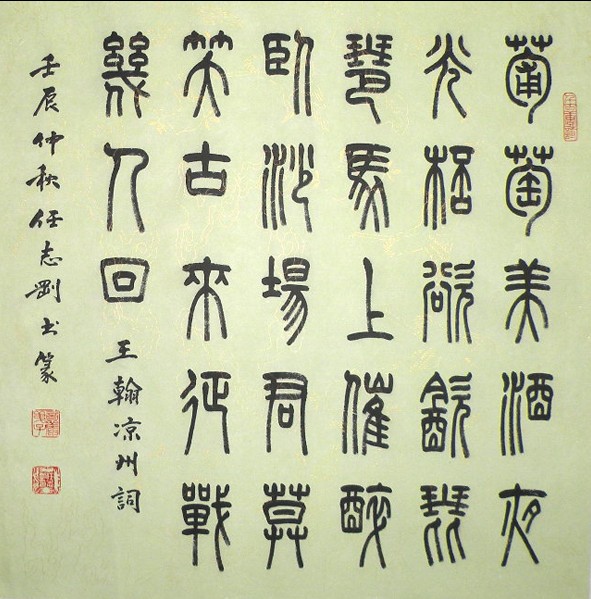 葡萄美酒夜
光桮欲飲琵
琶馬上催醉
臥沙場君莫
笑古來征戰
幾人回 王翰凉州詞
壬辰仲秋任志剛书篆